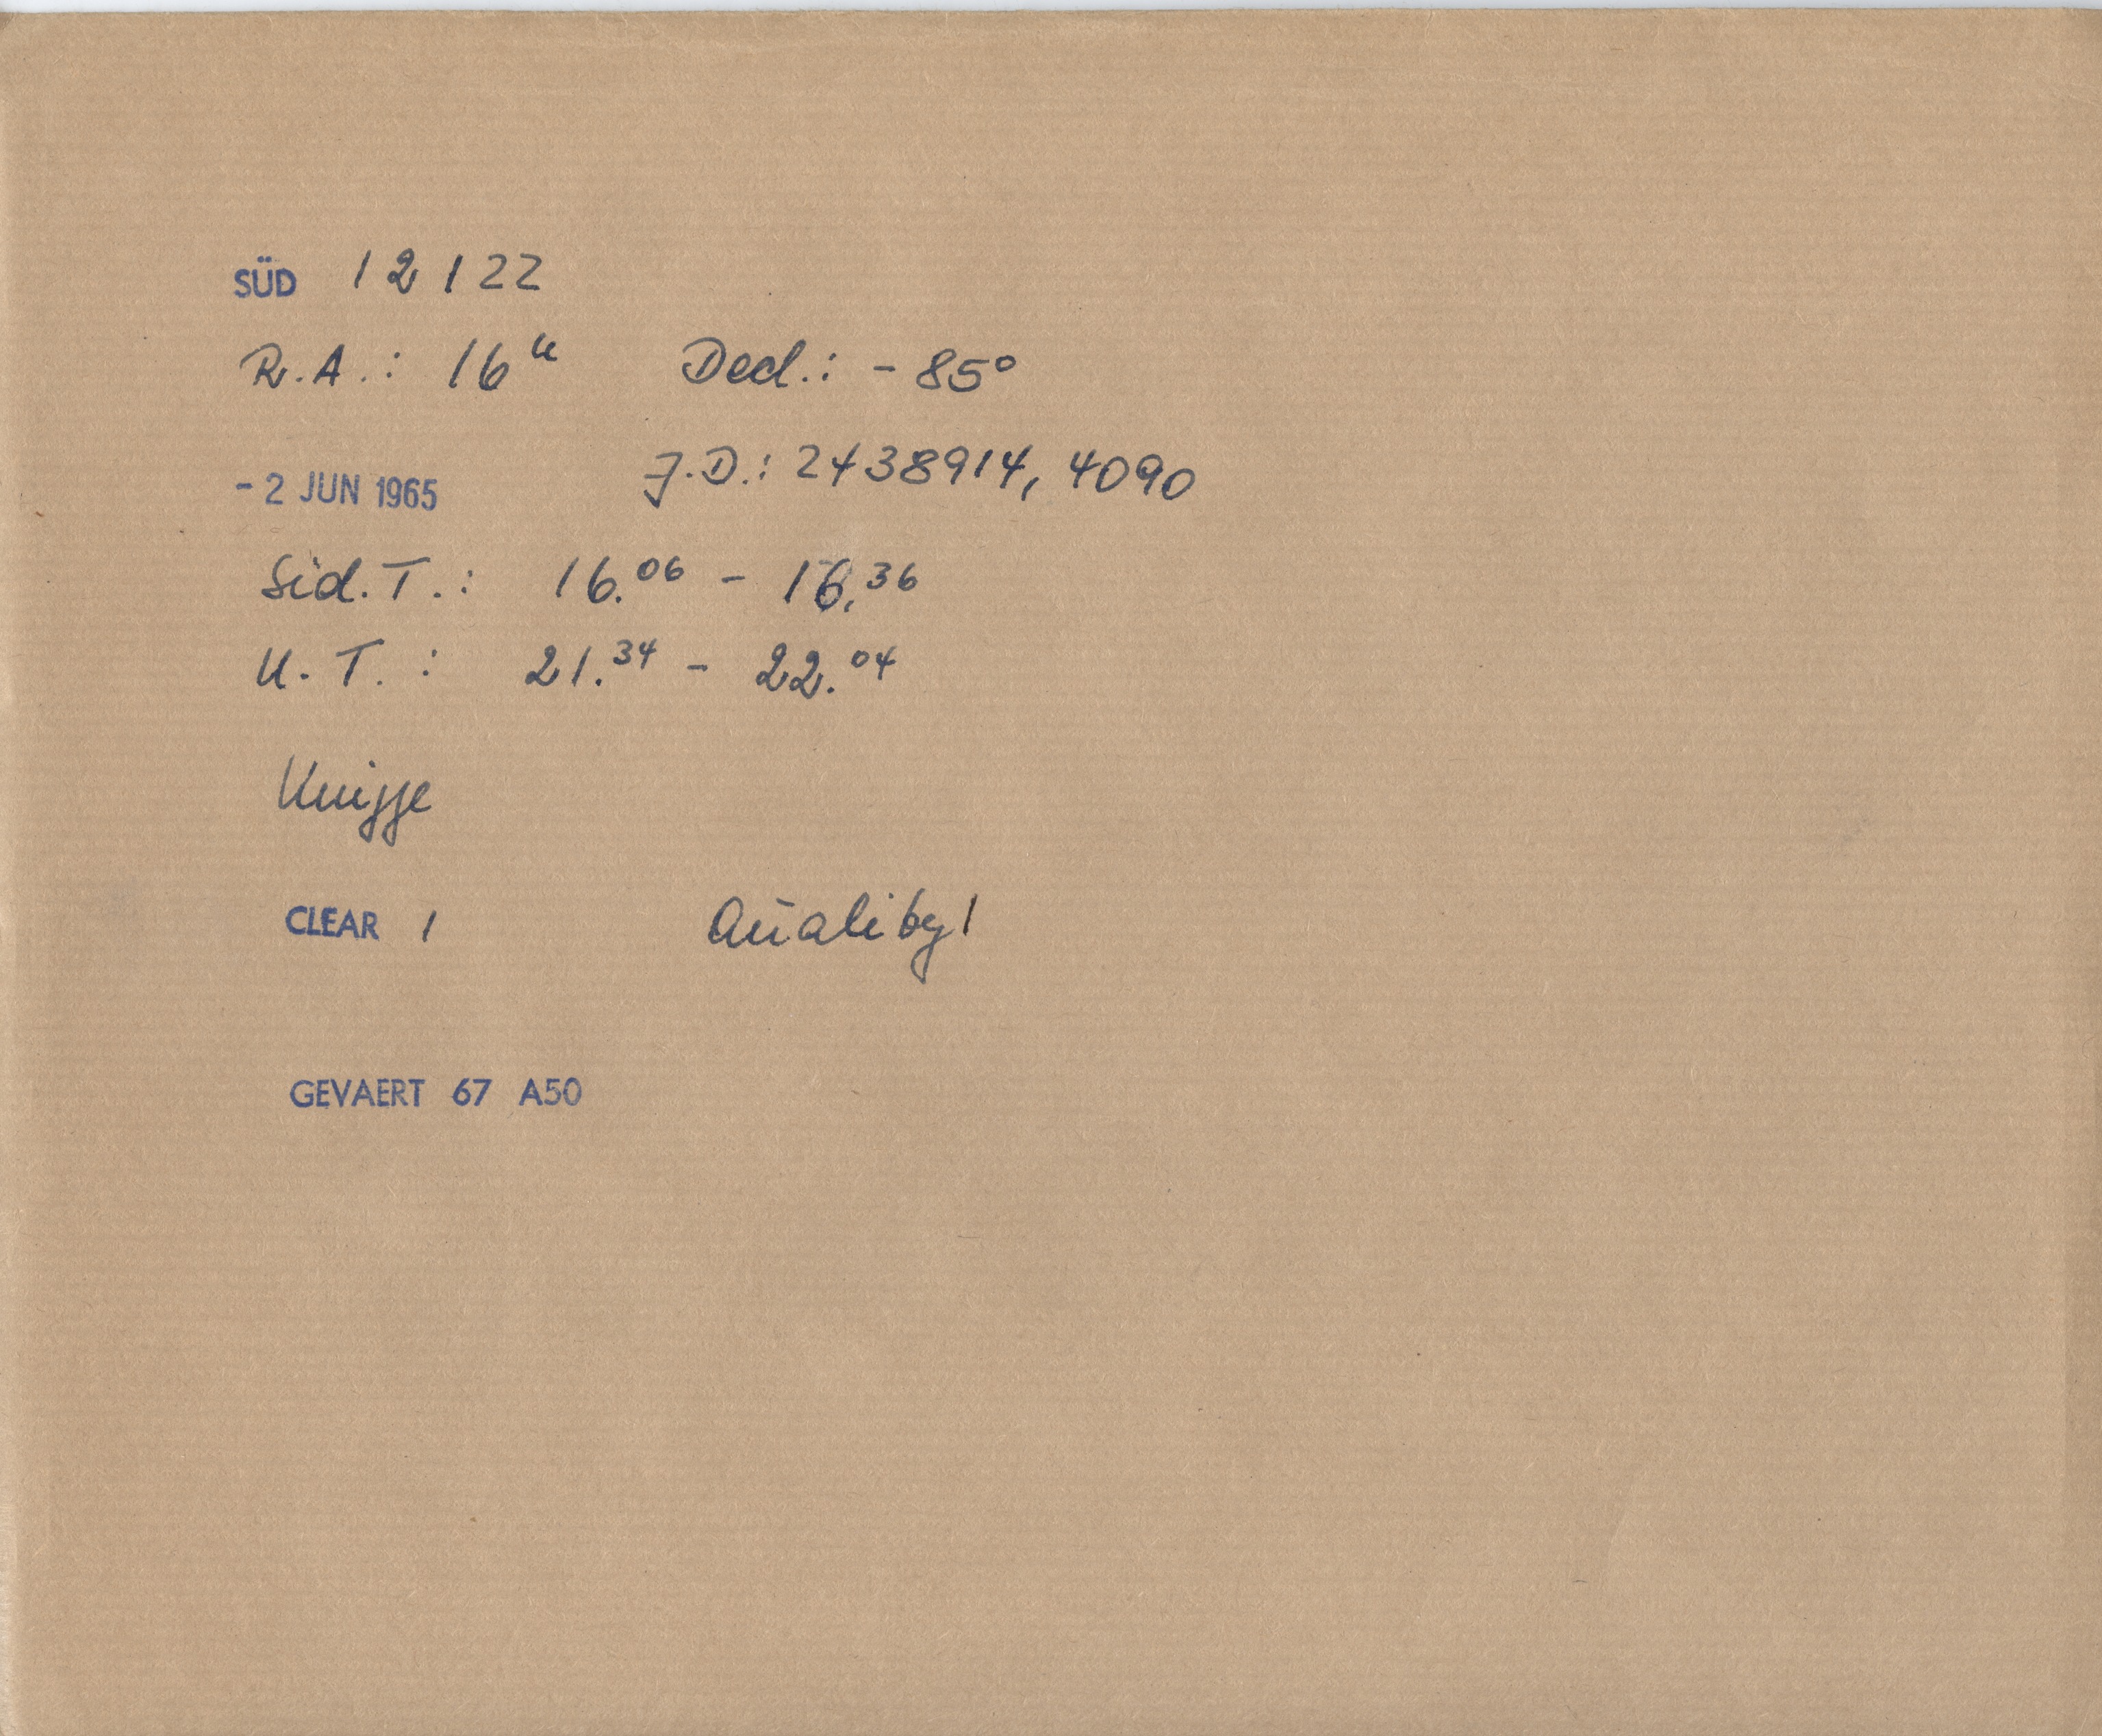 SÜD 12122
R.A.: 16ʰ Decl.: - 85°
- 2 JUN 1965 J.D.: 2438914, 4090
Sid. T.: 16.⁰⁶ - 16.³⁶
U. T.: 21.³⁴ - 22.⁰⁴
Knigge
CLEAR 1 Quality 1
GEVAERT 67 A50